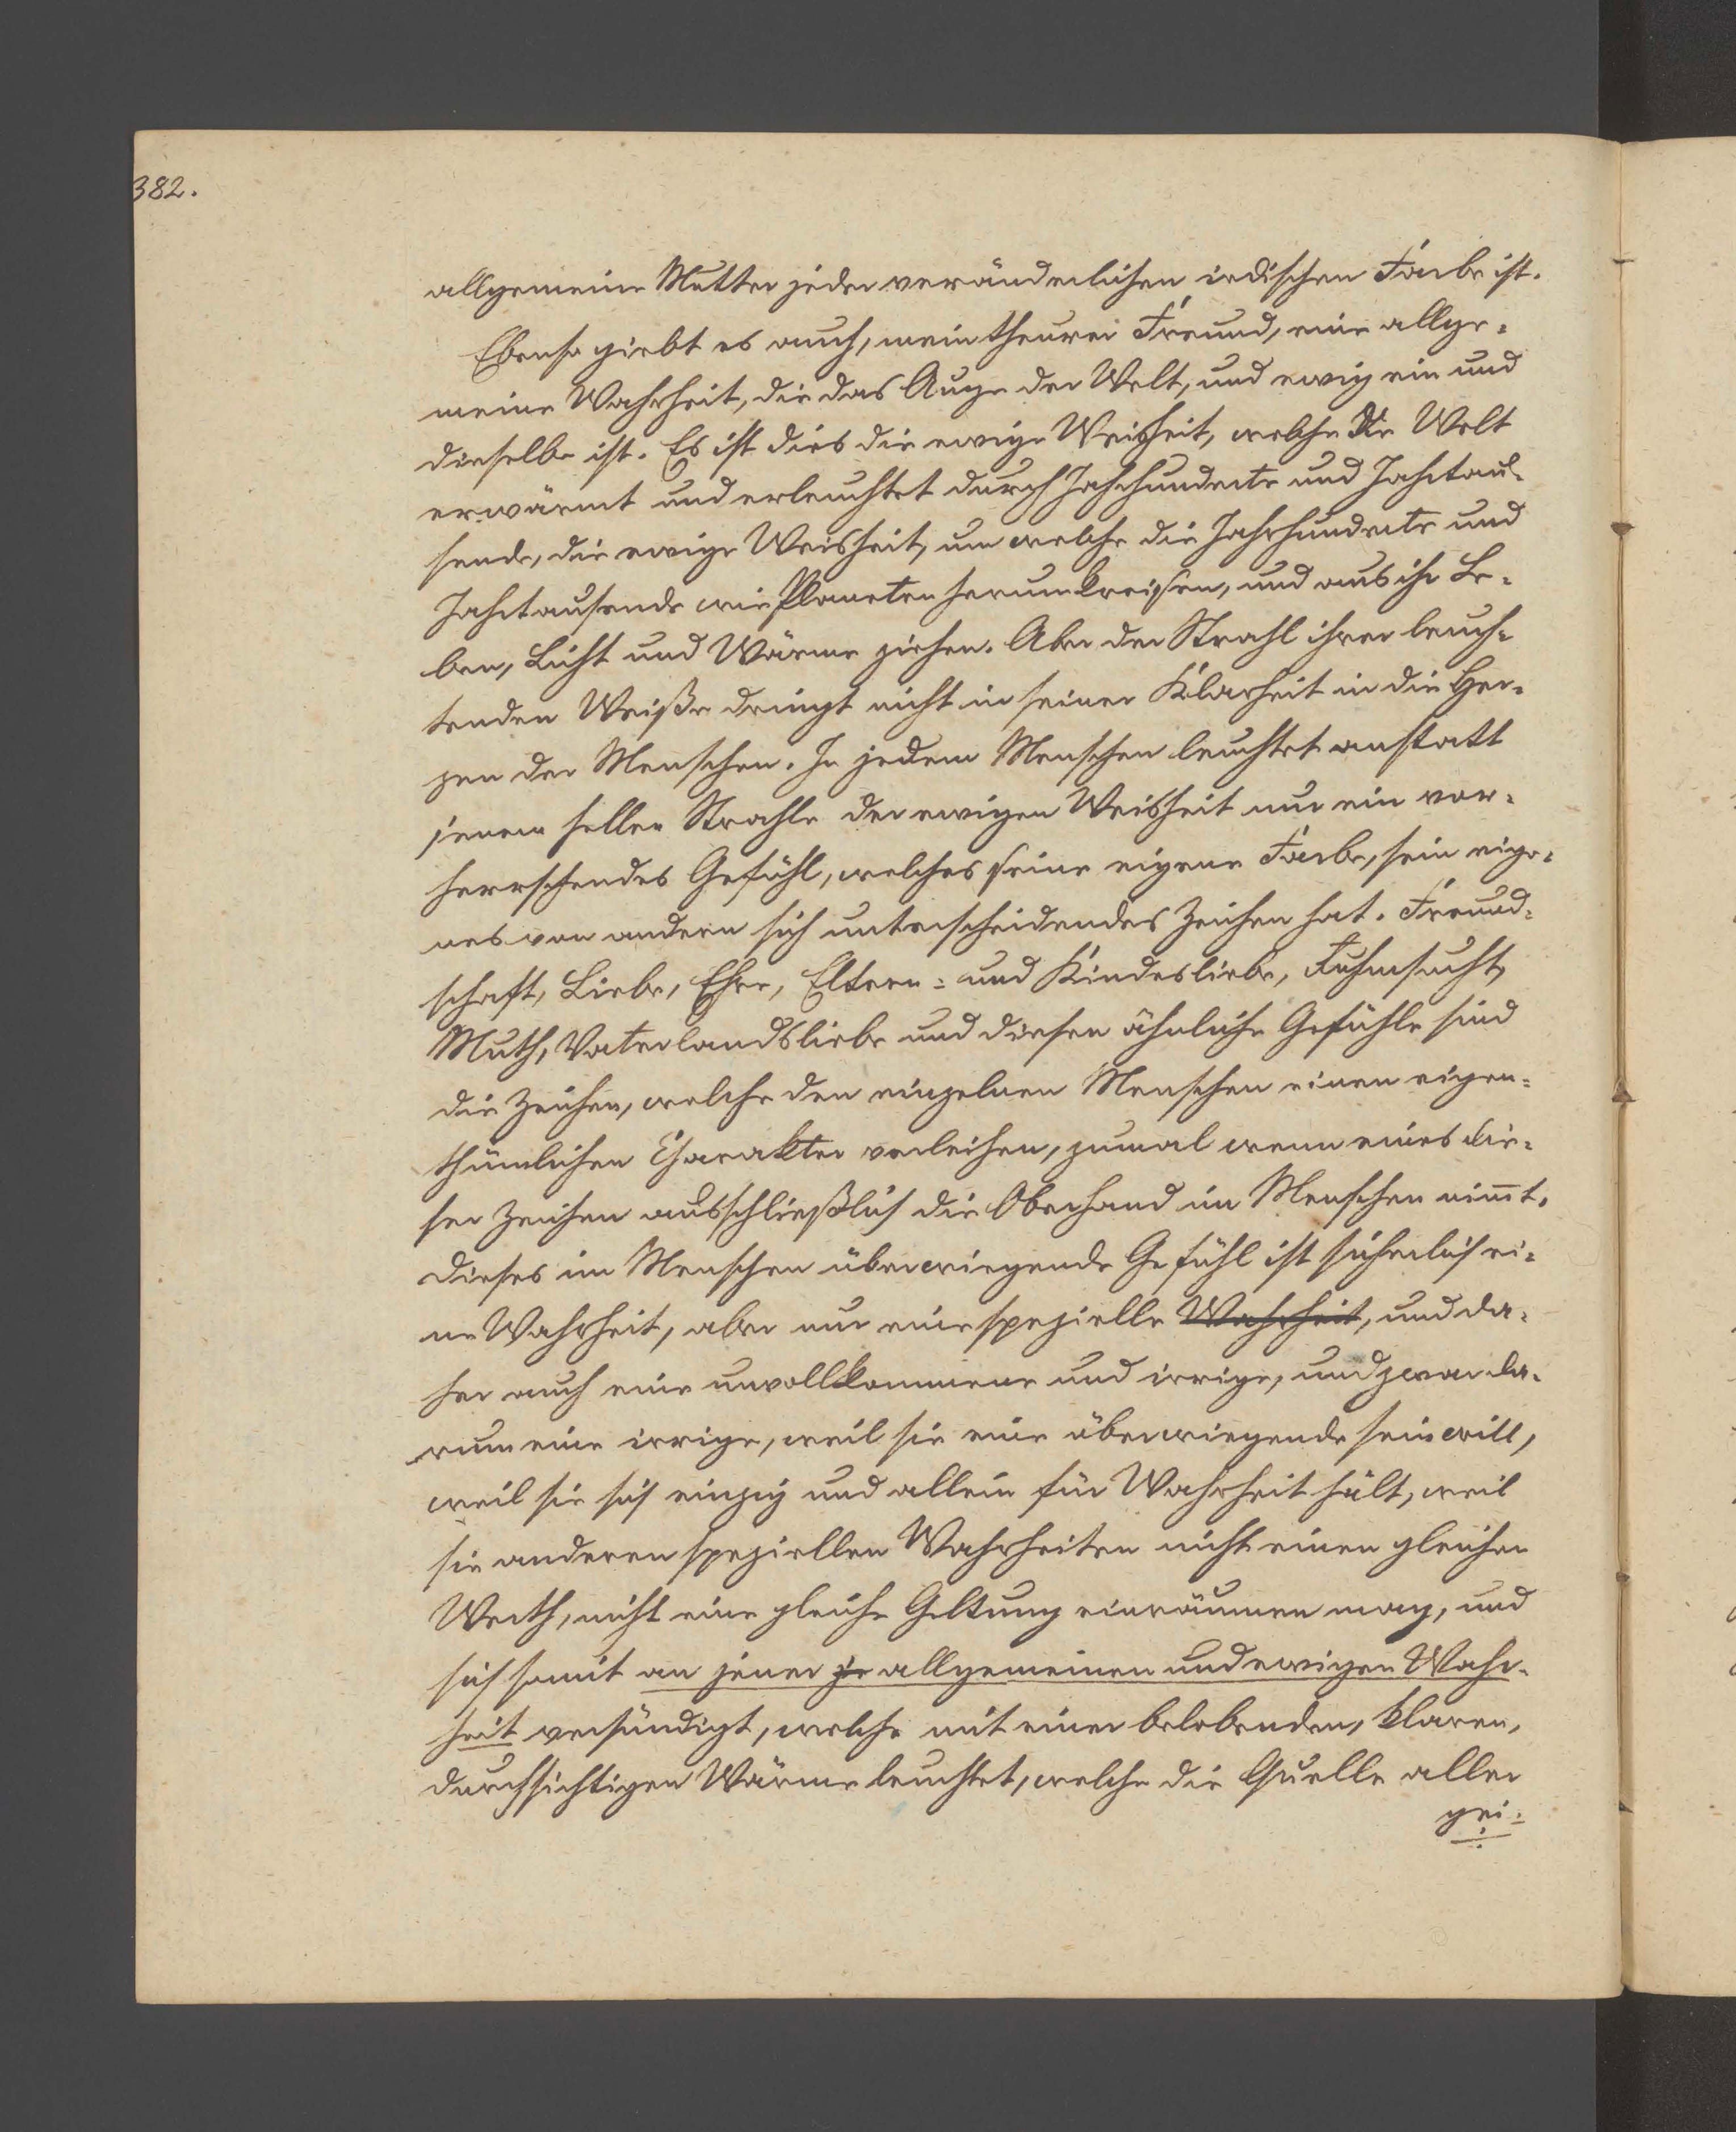 382.
allgemeine Mutter jeder veränderlichen irdischen Farbe ist.
Ebenso giebt es auch, mein theurer Freund, eine allge-
meine Wahrheit, die das Auge der Welt, und ewig ein und
dieselbe ist. Es ist dies die ewige Weisheit, welche die Welt
erwärmt und erleuchtet durch Jahrhunderte und Jahrtau-
sende, die ewige Weisheit, um welche die Jahrhunderte und
Jahrtausende wie Planeten herumkreisen, und aus ihr Le-
ben, Licht und Wärme ziehen. Aber der Strahl ihrer leuch-
tenden Weiße dringt nicht in seiner Klarheit in die Her-
zen der Menschen. In jedem Menschen leuchtet anstatt
jenem hellen Strahle der ewigen Weisheit nur ein vor-
herrschendes Gefühl, welches seine eigene Farbe, sein eige-
nes von andern sich unterscheidendes Zeichen hat. Freund-
schaft, Liebe, Ehre, Eltern- und Kindesliebe, Ruhmsucht,
Muth, Vaterlandsliebe und diesen ähnliche Gefühle sind
die Zeichen, welche den einzelnen Menschen einen eigen-
thümlichen Charakter verleihen, zumal wenn eines die-
ser Zeichen ausschließlich die Oberhand im Menschen nimmt.
Dieses im Menschen überwiegende Gefühl ist sicherlich ei-
ne Wahrheit, aber nur eine spezielle Wahrheit, und da-
her auch eine unvollkommene und irrige, und zwar da-
rum eine irrige, weil sie eine überwiegende sein will,
weil sie sich einzig und allein für Wahrheit hält, weil
sie anderen speziellen Wahrheiten nicht einen gleichen
Werth, nicht eine gleiche Geltung einräumen mag, und
sich somit an jener je allgemeinen und ewigen Wahr-
heit versündigt, welche mit einer belebenden, klaren,
durchsichtigen Wärme leuchtet, welche die Quelle aller
gei-